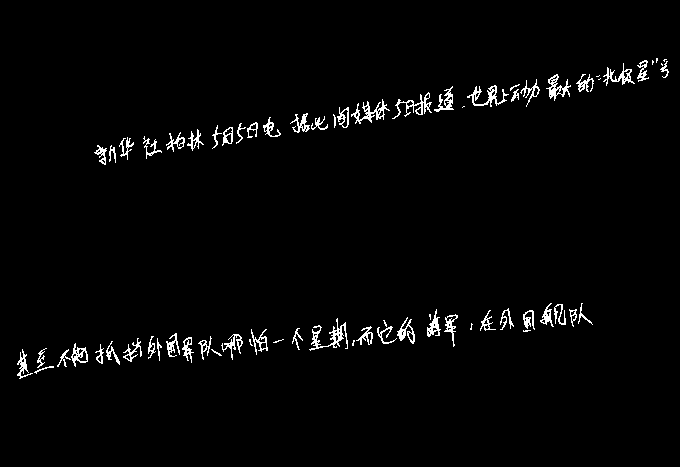 新华社柏林5月5日电 据此间媒体5日报道,世界上动力最大的“北极星”号
甚至不能抵挡外国军队哪怕一个星期,而它的海军,在外国舰队